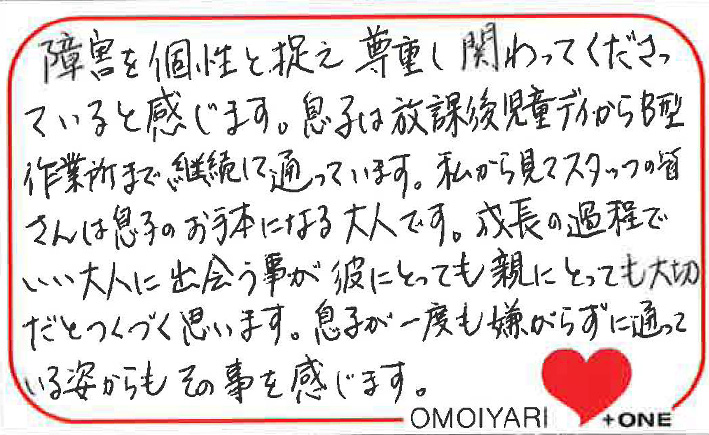 障害を個性と捉え 尊重し 関わってくださっ
ていると感じます。息子は放課後児童デイからB型
作業所まで継続して通っています。私から見てスタッフの皆
さんは息子のお手本になる大人です。成長の過程で
いい大人に出会う事が彼にとっても親にとっても大切
だとつくづく思います。息子が一度も嫌がらずに通って
いる姿からもその事を感じます。
OMOIYARI
+ONE